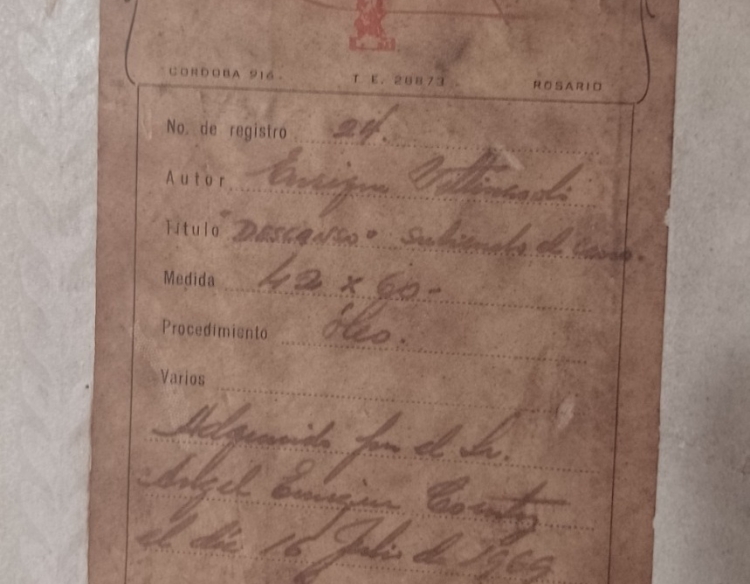 CORDOBA 916 - T. E. 20873 ROSARIO
No. de registro 24.
Autor Enrique
Título "DESCANSO" subiendo el
Medida 42 x 60-
Procedimiento óleo.
Varios
Adquirido por el Sr.
Angel Enrique
el día 16 Julio de 1969